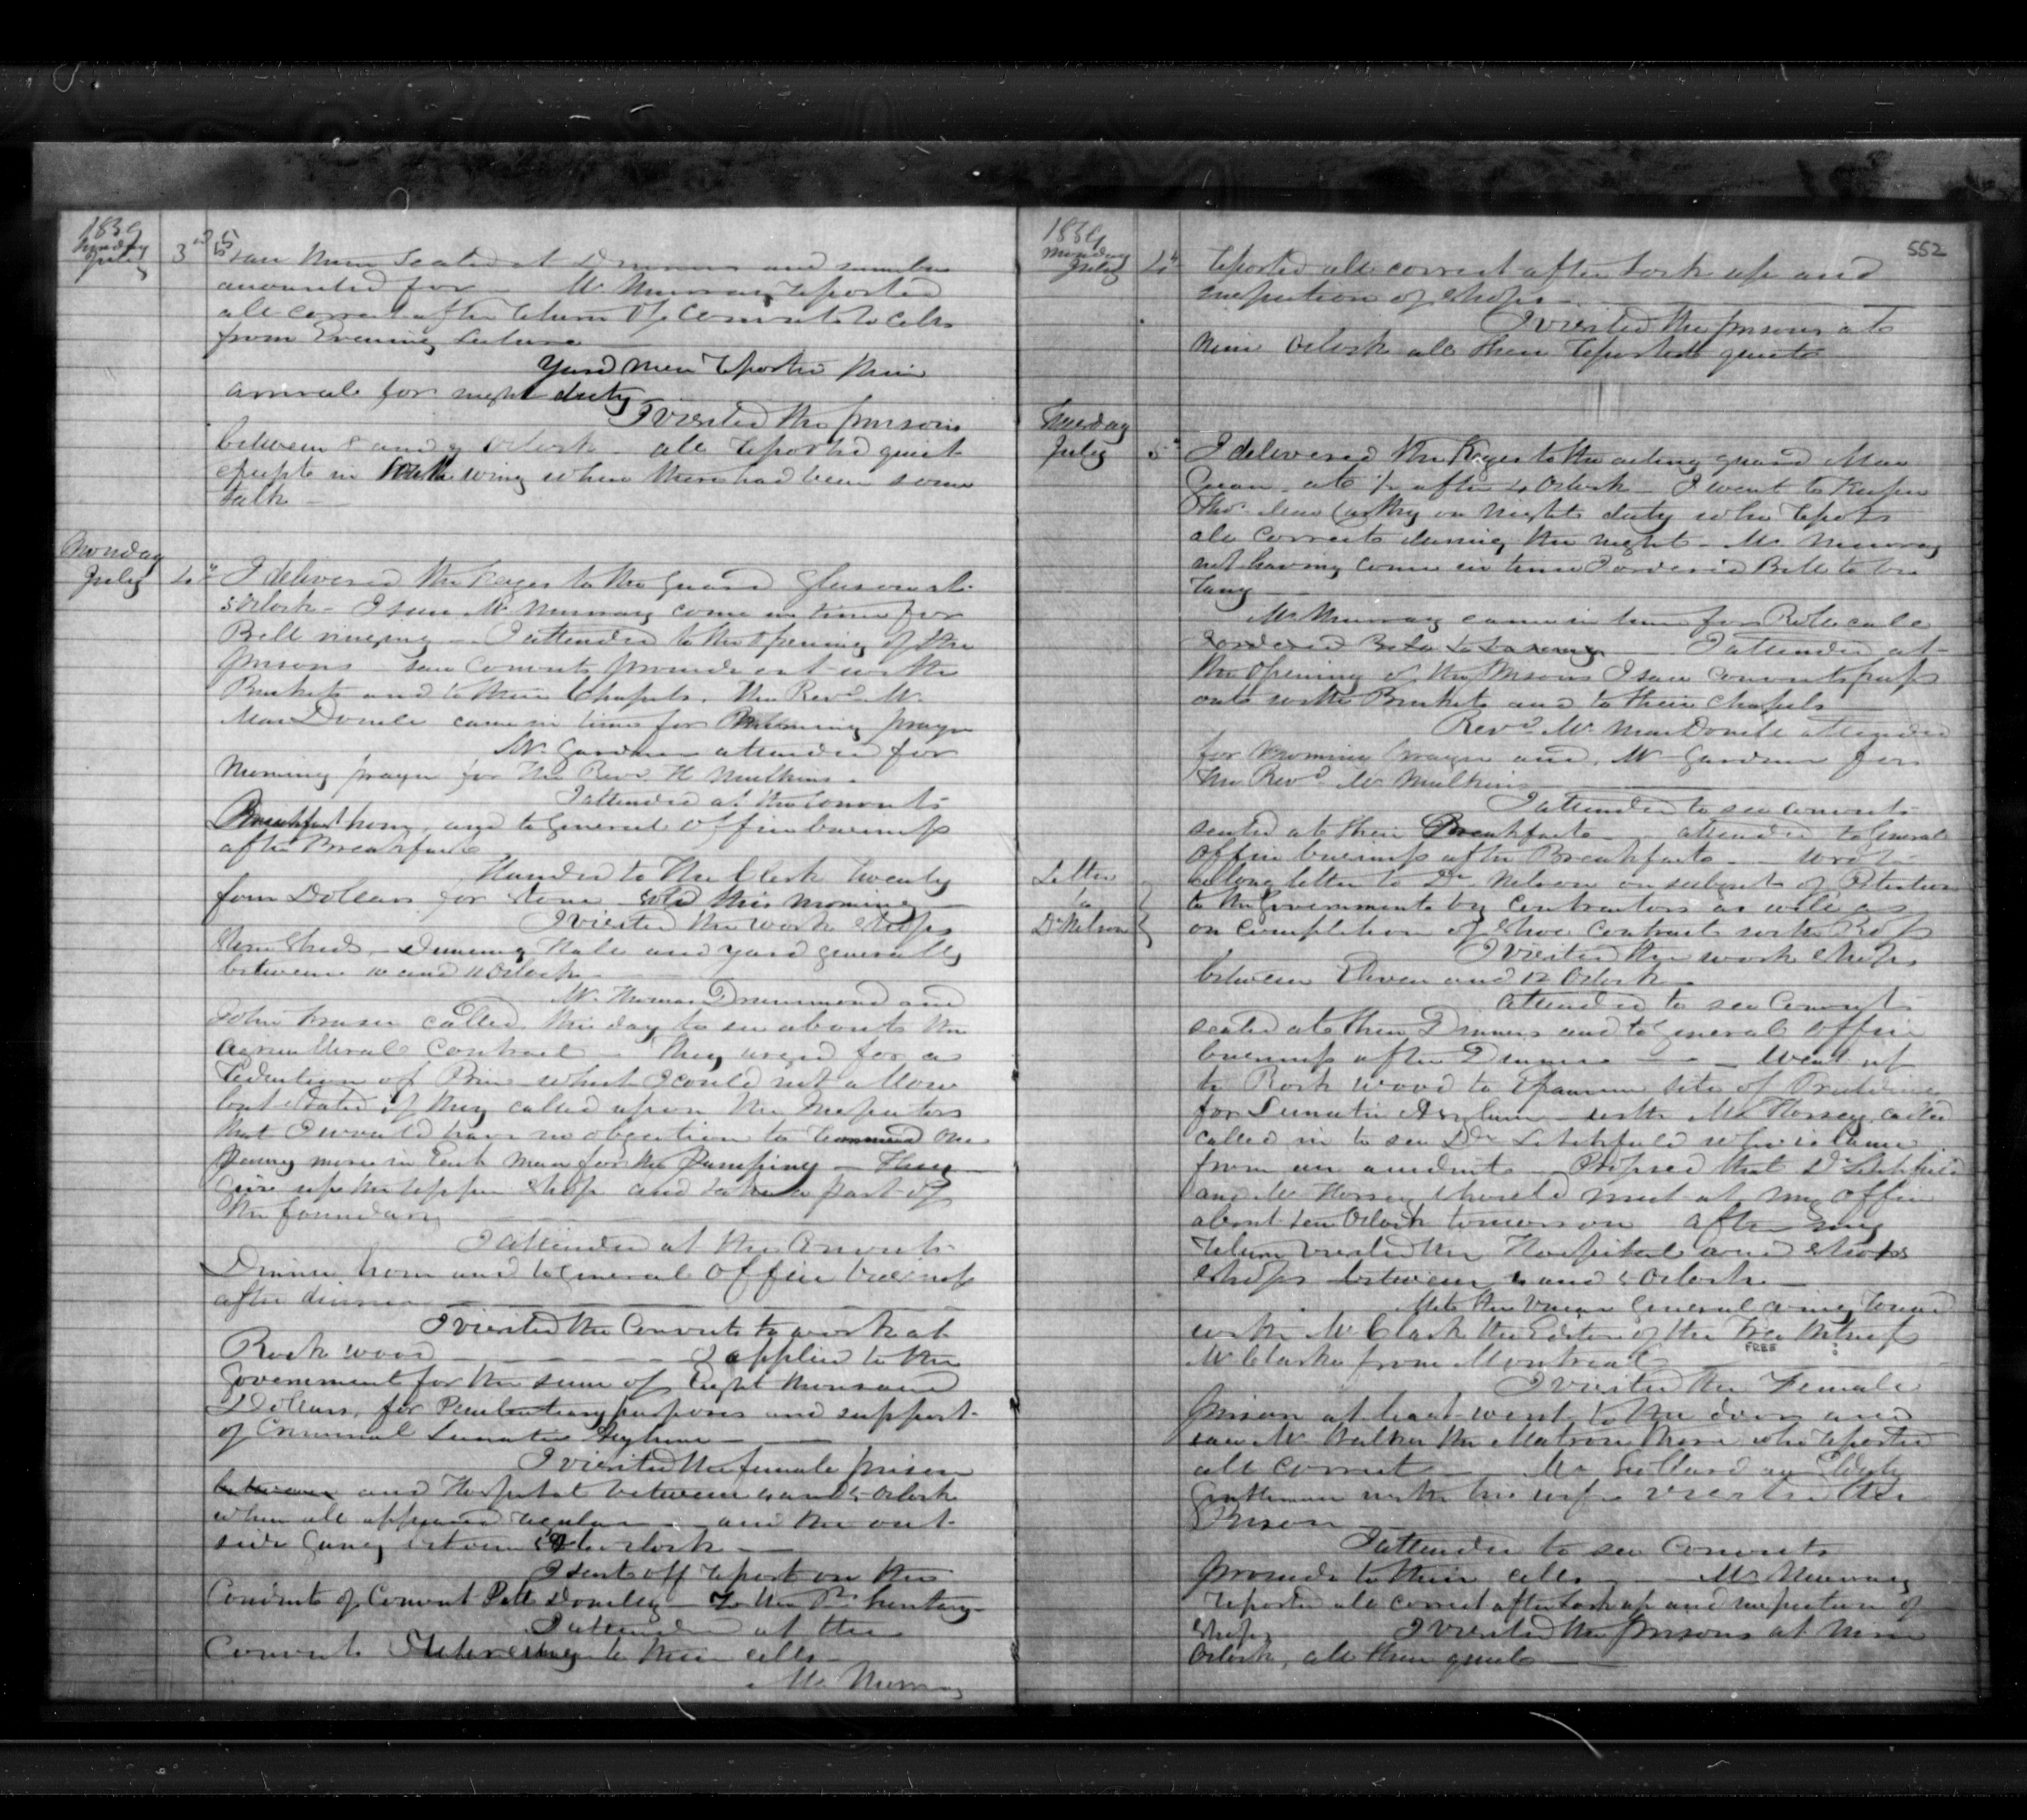 1859
Sunday
July 3rd
saw them seated at Dinner and number
accounted for — Mr Murray reported
all correct after return of Convicts to Cells
from Evening
Yard men reported their
arrival for night duty
I visited the prisons
between 8 and 9 Oclock — all reported quiet
except in South wing where there had been some
talk —
Monday
July 4th I delivered the Keys to the guard Gleeson at
5 Oclock — I saw Mr Murray come in time for
Bell ringing — I attended to the opening of the
prisons — saw Convicts proceed out with
Buckets and to their Chapels. The Revd Mr
MacDonell came in time for Morning prayer
Mr Gardner attended for
Morning prayer for the Revd H Mulkins.
I attended at the Convicts
Breakfast hour and to General Office business
after Breakfast
Handed to the Clerk twenty
four Dollars for stone sold this morning —
I visited the work shops
Stone Sheds — Dining Hall and yard generally
between 10 and 11 Oclock —
Mr Thomas Drummond and
John Fraser called this day to see about the
Agricultural Contract — They urged for a
reduction of Price which I could not allow
but stated if they called upon the Inspectors
that I would have no objection to recommend one
Penny more in Each man for the — They
give up the upper shop and take a part of
the foundary
I attended at the Convicts
Dinner hour and to General Office business
after dinner
I visited the Convicts to work at
Rock wood — I applied to the
Government for the sum of Eight thousand
Dollars, for Penitentiary purposes and support
of Criminal Lunatic Asylum —
I visited the female prison
between and Hospital between 4 and 5 Oclock
when all appeared regular — and the out
side Gang between Oclock —
I sent off report on the
Conduct of Convict Donelly — To the Secretary
I attended at the
Convicts to their cells —
Mr Murray
1859
Monday
July 4th
552
reported all correct after lock up and
inspection of shops —
I visited the prisons at
nine Oclock all then reported quiet
Tuesday
July 5th I delivered the Keys to the acting guard Mac
at ½ after 4 Oclock — I went to Keeper
Thos MacCarthy on night duty who reports
all correct during the night — Mr Murray
not having come in time I ordered Bell to be
rang
Mr Murray came in time for Roll call
I ordered Bell to be rung — I attended at
the opening of the prisons I saw convicts pass
out with Buckets and to their chapels
Revd Mr MacDonell attended
for morning prayer and Mr Gardner for
the Revd Mr Mulkins
I attended to see convicts
seated at their Breakfast — attended to General
Office business after Breakfast — wrote
Letter
to
Dr Nelson
a long letter to Dr Nelson on subject of Petition
to the Government by Contractors as well as
on completion of Shoe Contract with Ross
I visited the work shops
between Eleven and 12 Oclock
attended to see Convicts
seated at their Dinners and to General Office
business after Dinner — went up
to Rock wood to Examine site of
for Lunatic Asylum — with Mr Horsey called
called in to see Dr Litchfield who is lame
from an accident — Proposed that Dr Litchfield
and Mr Horsey should meet at my Office
about ten Oclock tomorrow after my
return visited the Hospital and shops
shops between 4 and 5 Oclock —
Met the Vicar General going round
with Mr Clark the Editor of the True Witness
FREE ?
Mr Clarke from Montreal
I visited the Female
prison at least went to the door and
saw Mrs Walker the Matron there who reported
all correct — Mr an Elderly
Gentleman with his wife visited the
Prison —
I attended to see Convicts
proceed to their cells — Mr Murray
reported all correct after lock up and inspection of
shops I visited the prisons at nine
Oclock, all then quiet —